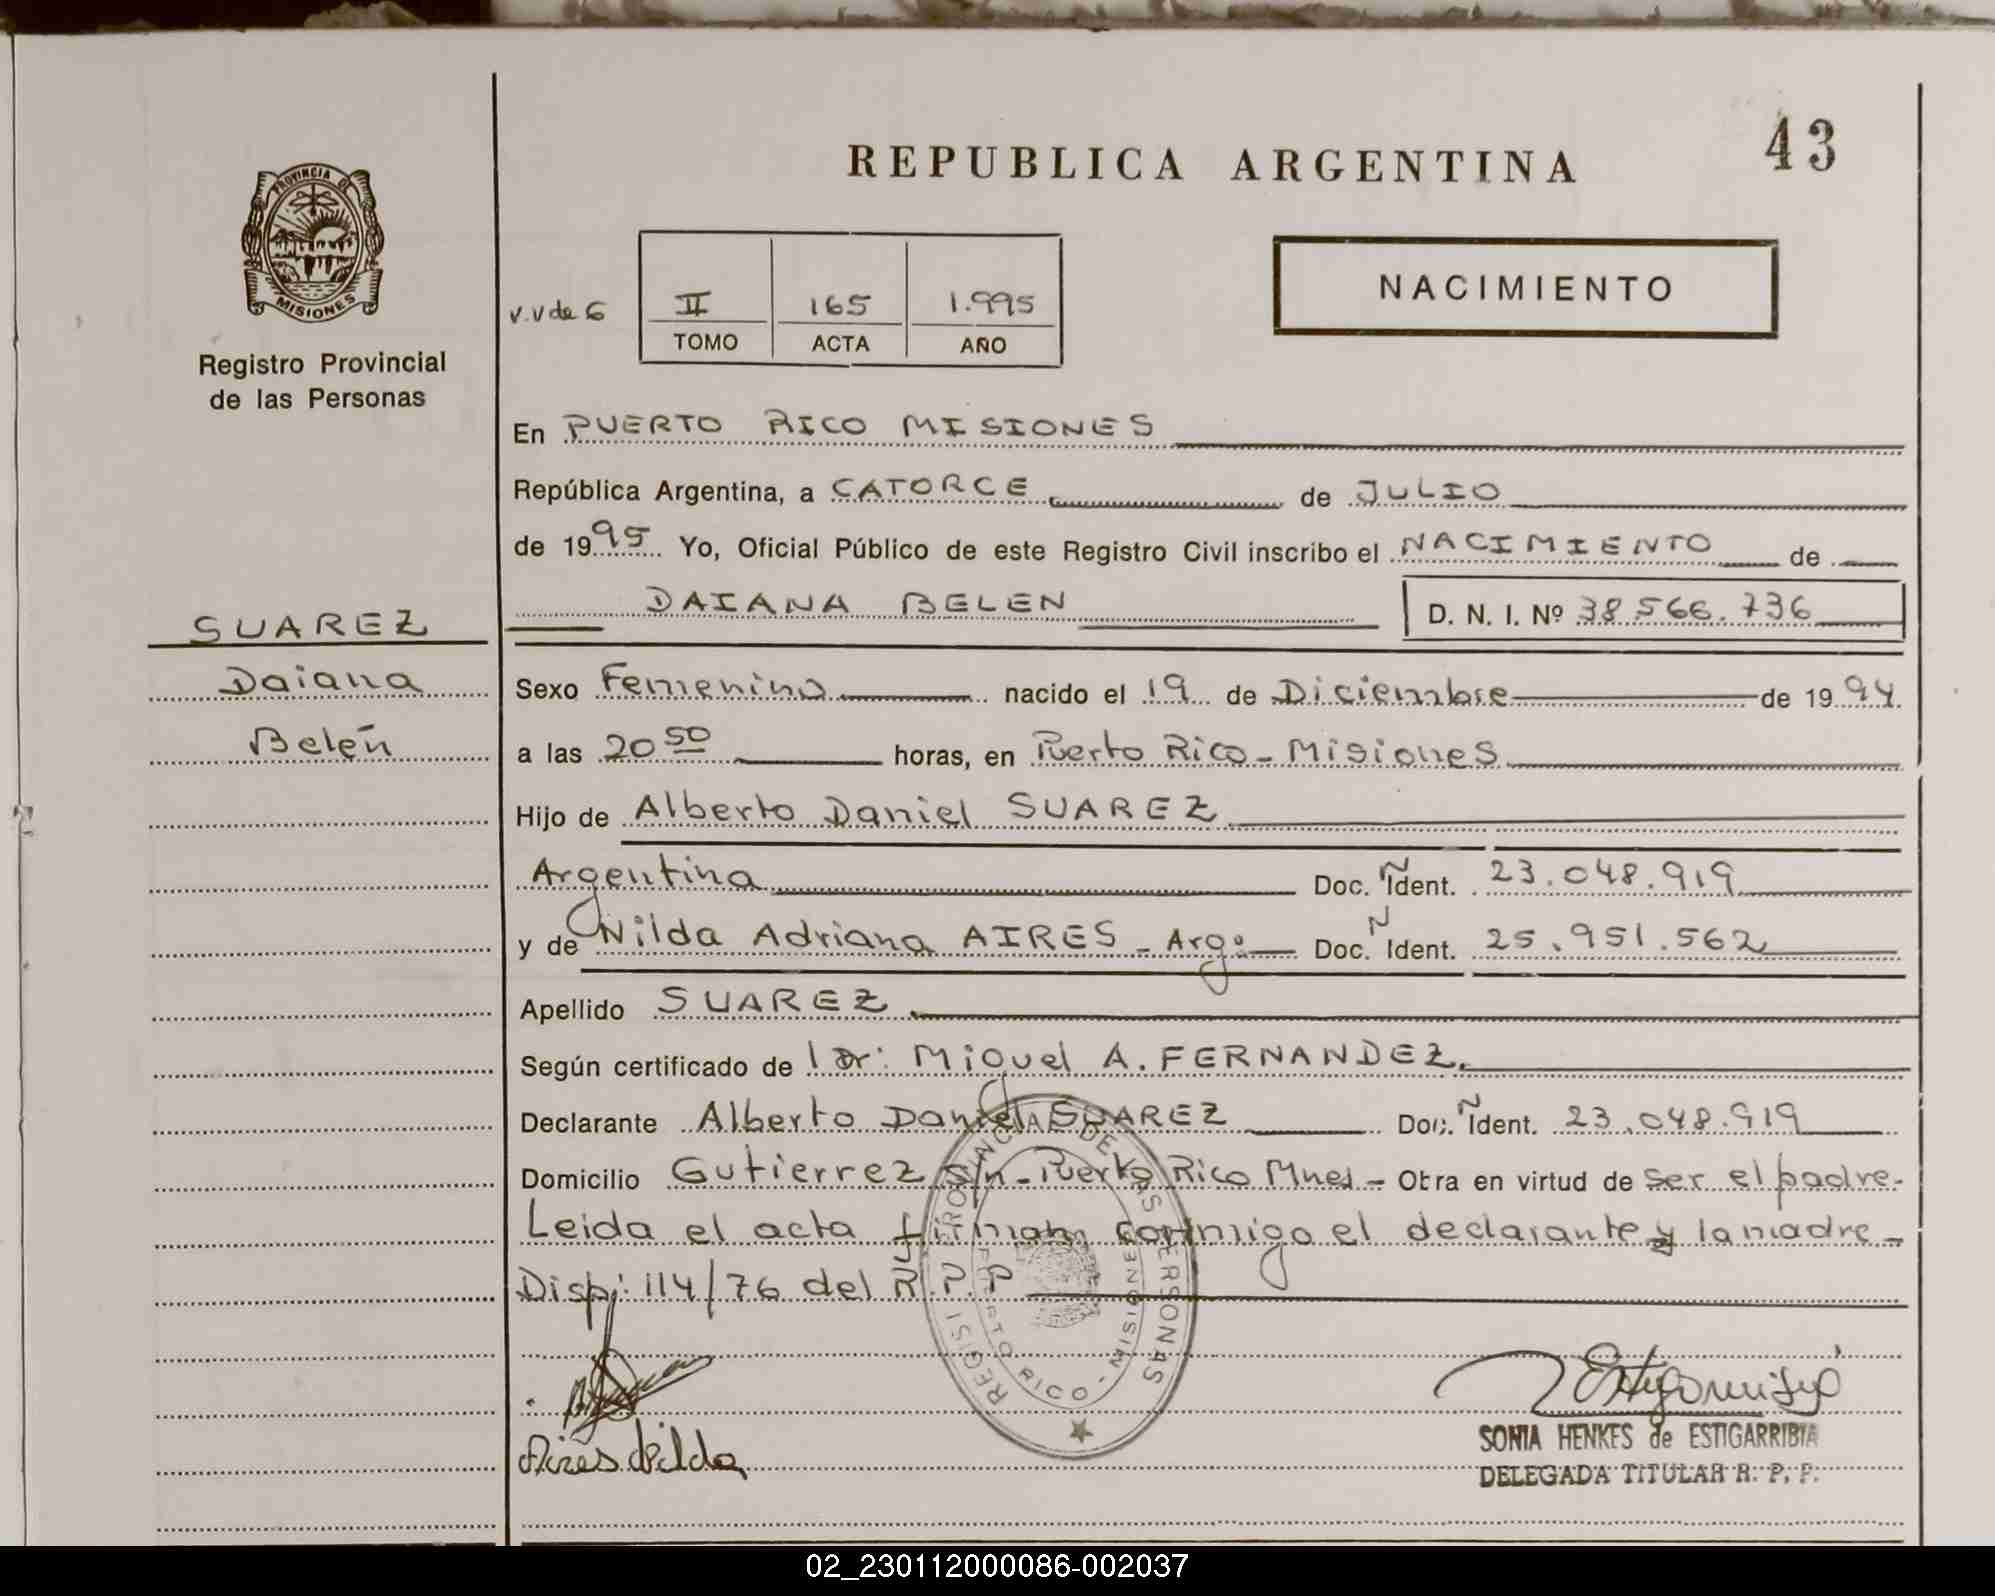 REPUBLICA ARGENTINA
43
PROVINCIA DE
MISIONES
Registro Provincial
de las Personas
v.v de 6
II 165 1.995
TOMO ACTA AÑO
NACIMIENTO
En PUERTO RICO MISIONES
República Argentina, a CATORCE de JULIO
de 1995 Yo, Oficial Público de este Registro Civil inscribo el NACIMIENTO de
DAIANA BELEN D. N. I. Nº 38.566.736
SUAREZ
Daiana
Belén
Sexo Femenino nacido el 19 de Diciembre de 1994.
a las 20 50 horas, en Puerto Rico - Misiones
Hijo de Alberto Daniel SUAREZ
Argentina Doc. Ñ Ident. 23.048.919
y de Nilda Adriana AIRES - Arg: Doc. N Ident. 25.951.562
Apellido SUAREZ
Según certificado de l Dr: Miguel A. FERNANDEZ.
Declarante Alberto Daniel SUAREZ Doc. Ñ Ident. 23.048.919
Domicilio Gutierrez s/n - Puerto Rico Mnes - Obra en virtud de ser el padre -
Leida el acta firman conmigo el declarante y la madre -
Disp: 114/76 del R.P.P
REGIST PROVINCIAL DE LAS PERSONAS
PUERTO RICO - MISIONES
Aires Nilda
SONIA HENKES de ESTIGARRIBIA
DELEGADA TITULAR R. P. P.
02_230112000086-002037